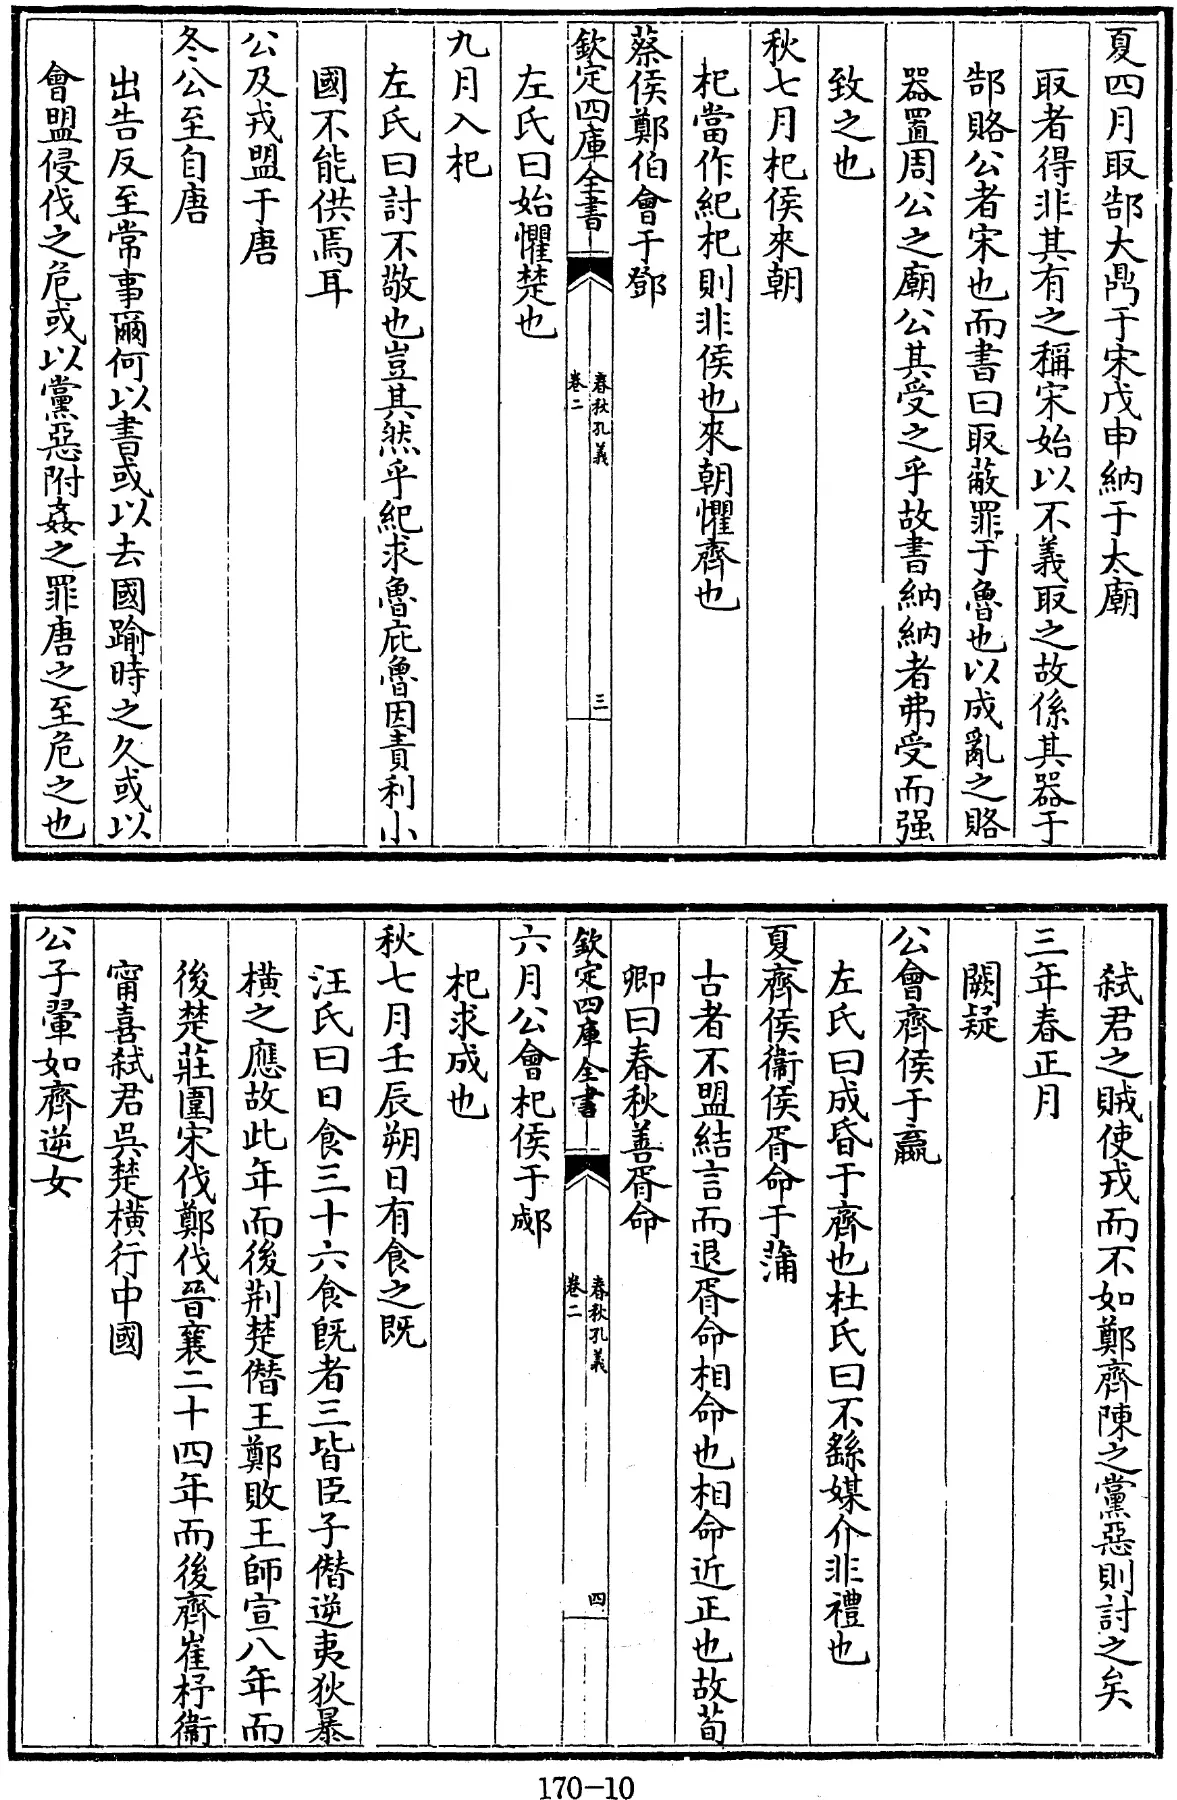 夏四月取郜大鼎于宋戊申納于太廟
取者得非其有之稱宋始以不義取之故係其器于
郜賂公者宋也而書曰取蔽罪于魯也以成亂之賂
器置周公之廟公其受之乎故書納納者弗受而强
致之也
秋七月杞侯來朝
杞當作紀杞則非侯也來朝懼齊也
蔡侯鄭伯會于鄧
欽定四庫全書
春秋孔義
卷二
三
左氏曰始懼楚也
九月入杞
左氏曰討不敬也豈其然乎紀求魯庇魯因責利小
國不能供焉耳
公及戎盟于唐
冬公至自唐
出告反至常事爾何以書或以去國踰時之久或以
會盟侵伐之危或以黨惡附姦之罪唐之至危之也
弒君之賊使戎而不如鄭齊陳之黨惡則討之矣
三年春正月
闕疑
公會齊侯于嬴
左氏曰成昏于齊也杜氏曰不繇媒介非禮也
夏齊侯衞侯胥命于蒲
古者不盟結言而退胥命相命也相命近正也故荀
卿曰春秋善胥命
欽定四庫全書
春秋孔義
卷二
四
六月公會杞侯于郕
杞求成也
秋七月壬辰朔日有食之既
汪氏曰日食三十六食既者三皆臣子僭逆夷狄暴
橫之應故此年而後荆楚僭王鄭敗王師宣八年而
後楚莊圍宋伐鄭伐晉襄二十四年而後齊崔杼衞
甯喜弒君吳楚橫行中國
公子翬如齊逆女
170-10